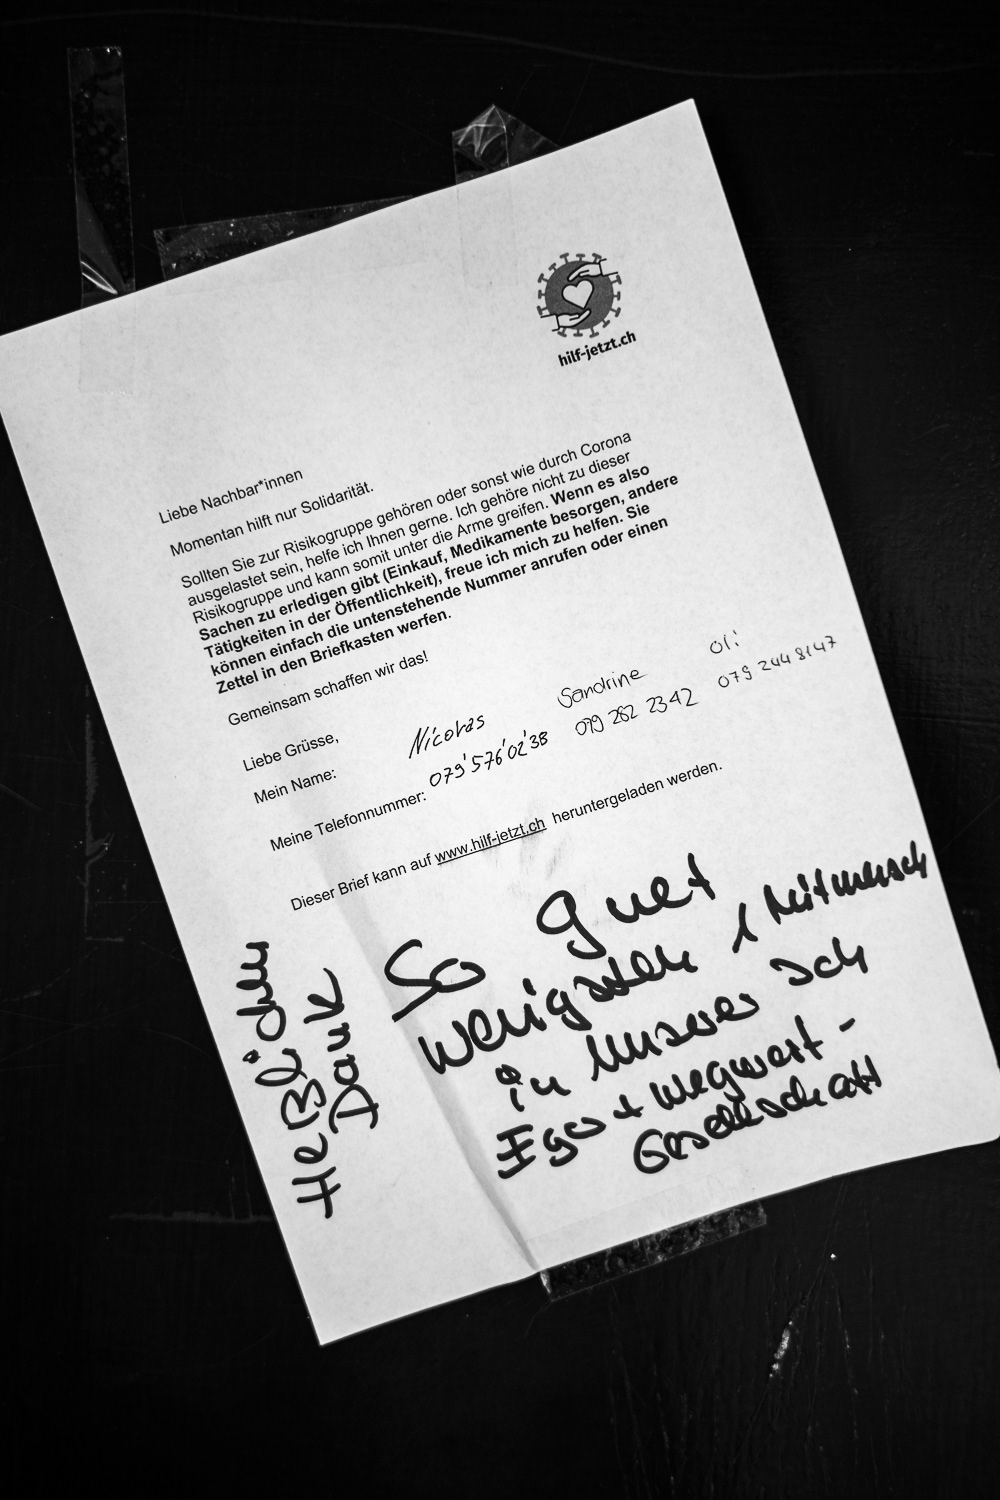 hilf-jetzt.ch
Liebe Nachbar*innen
Momentan hilft nur Solidarität.
Sollten Sie zur Risikogruppe gehören oder sonst wie durch Corona
ausgelastet sein, helfe ich Ihnen gerne. Ich gehöre nicht zu dieser
Risikogruppe und kann somit unter die Arme greifen. Wenn es also
Sachen zu erledigen gibt (Einkauf, Medikamente besorgen, andere
Tätigkeiten in der Öffentlichkeit), freue ich mich zu helfen. Sie
können einfach die untenstehende Nummer anrufen oder einen
Zettel in den Briefkasten werfen.
Gemeinsam schaffen wir das!
Liebe Grüsse,
Mein Name: Nicolas Sandrine Oli
Meine Telefonnummer: 079'576'02'38 079 282 2342 079 244 8147
Dieser Brief kann auf www.hilf-jetzt.ch heruntergeladen werden.
So guet
wenigsten 1 Mitmensch
in unserer Ich
Ego + wegwerf-
Gesellschaft
Heßlichen
Dank